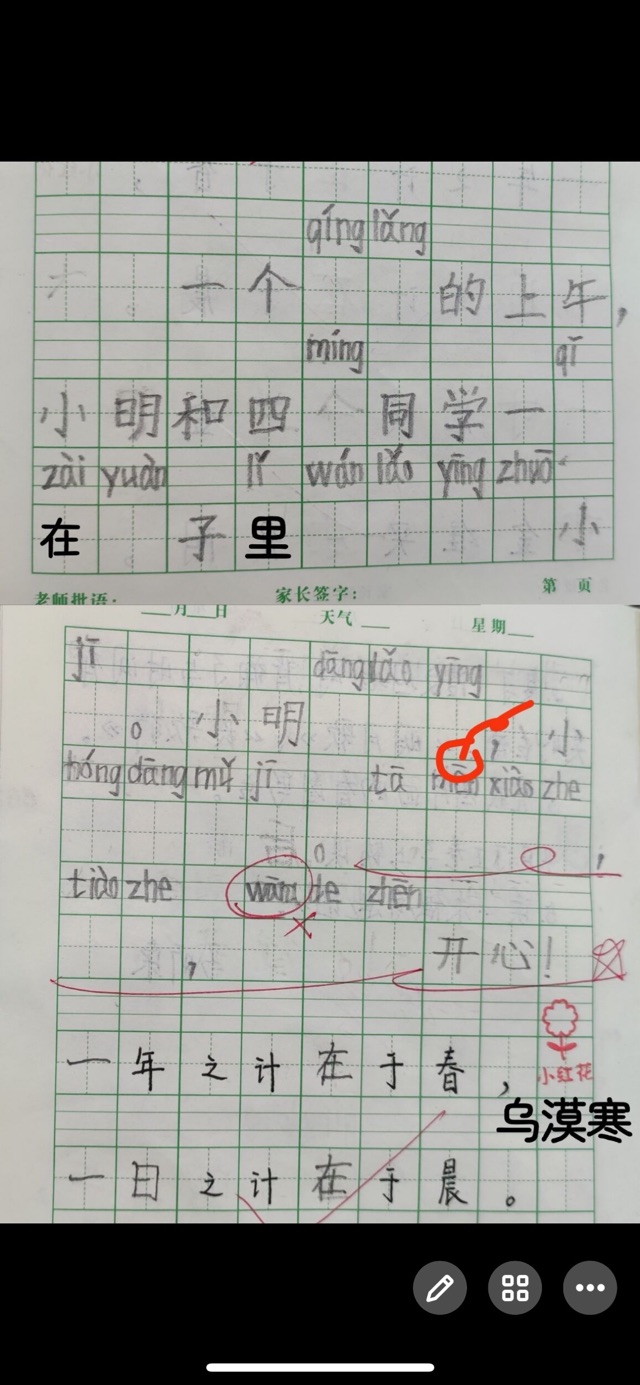 qíng lǎng
一个 的上午，
míng qī
小明和四 同学一
zài yuàn lǐ wán lǎo yīng zhuō
在 子里 小
老师批语： 家长签字： 第 页
月 日 天气 星期
jī dāng lǎo yīng
。小明 ，小
hóng dāng mǔ jī tā mēn xiào zhe
。 ，
tiào zhe wán de zhēn
， 开心！
一年之计在于春，
小红花
乌漠寒
一日之计在于晨。